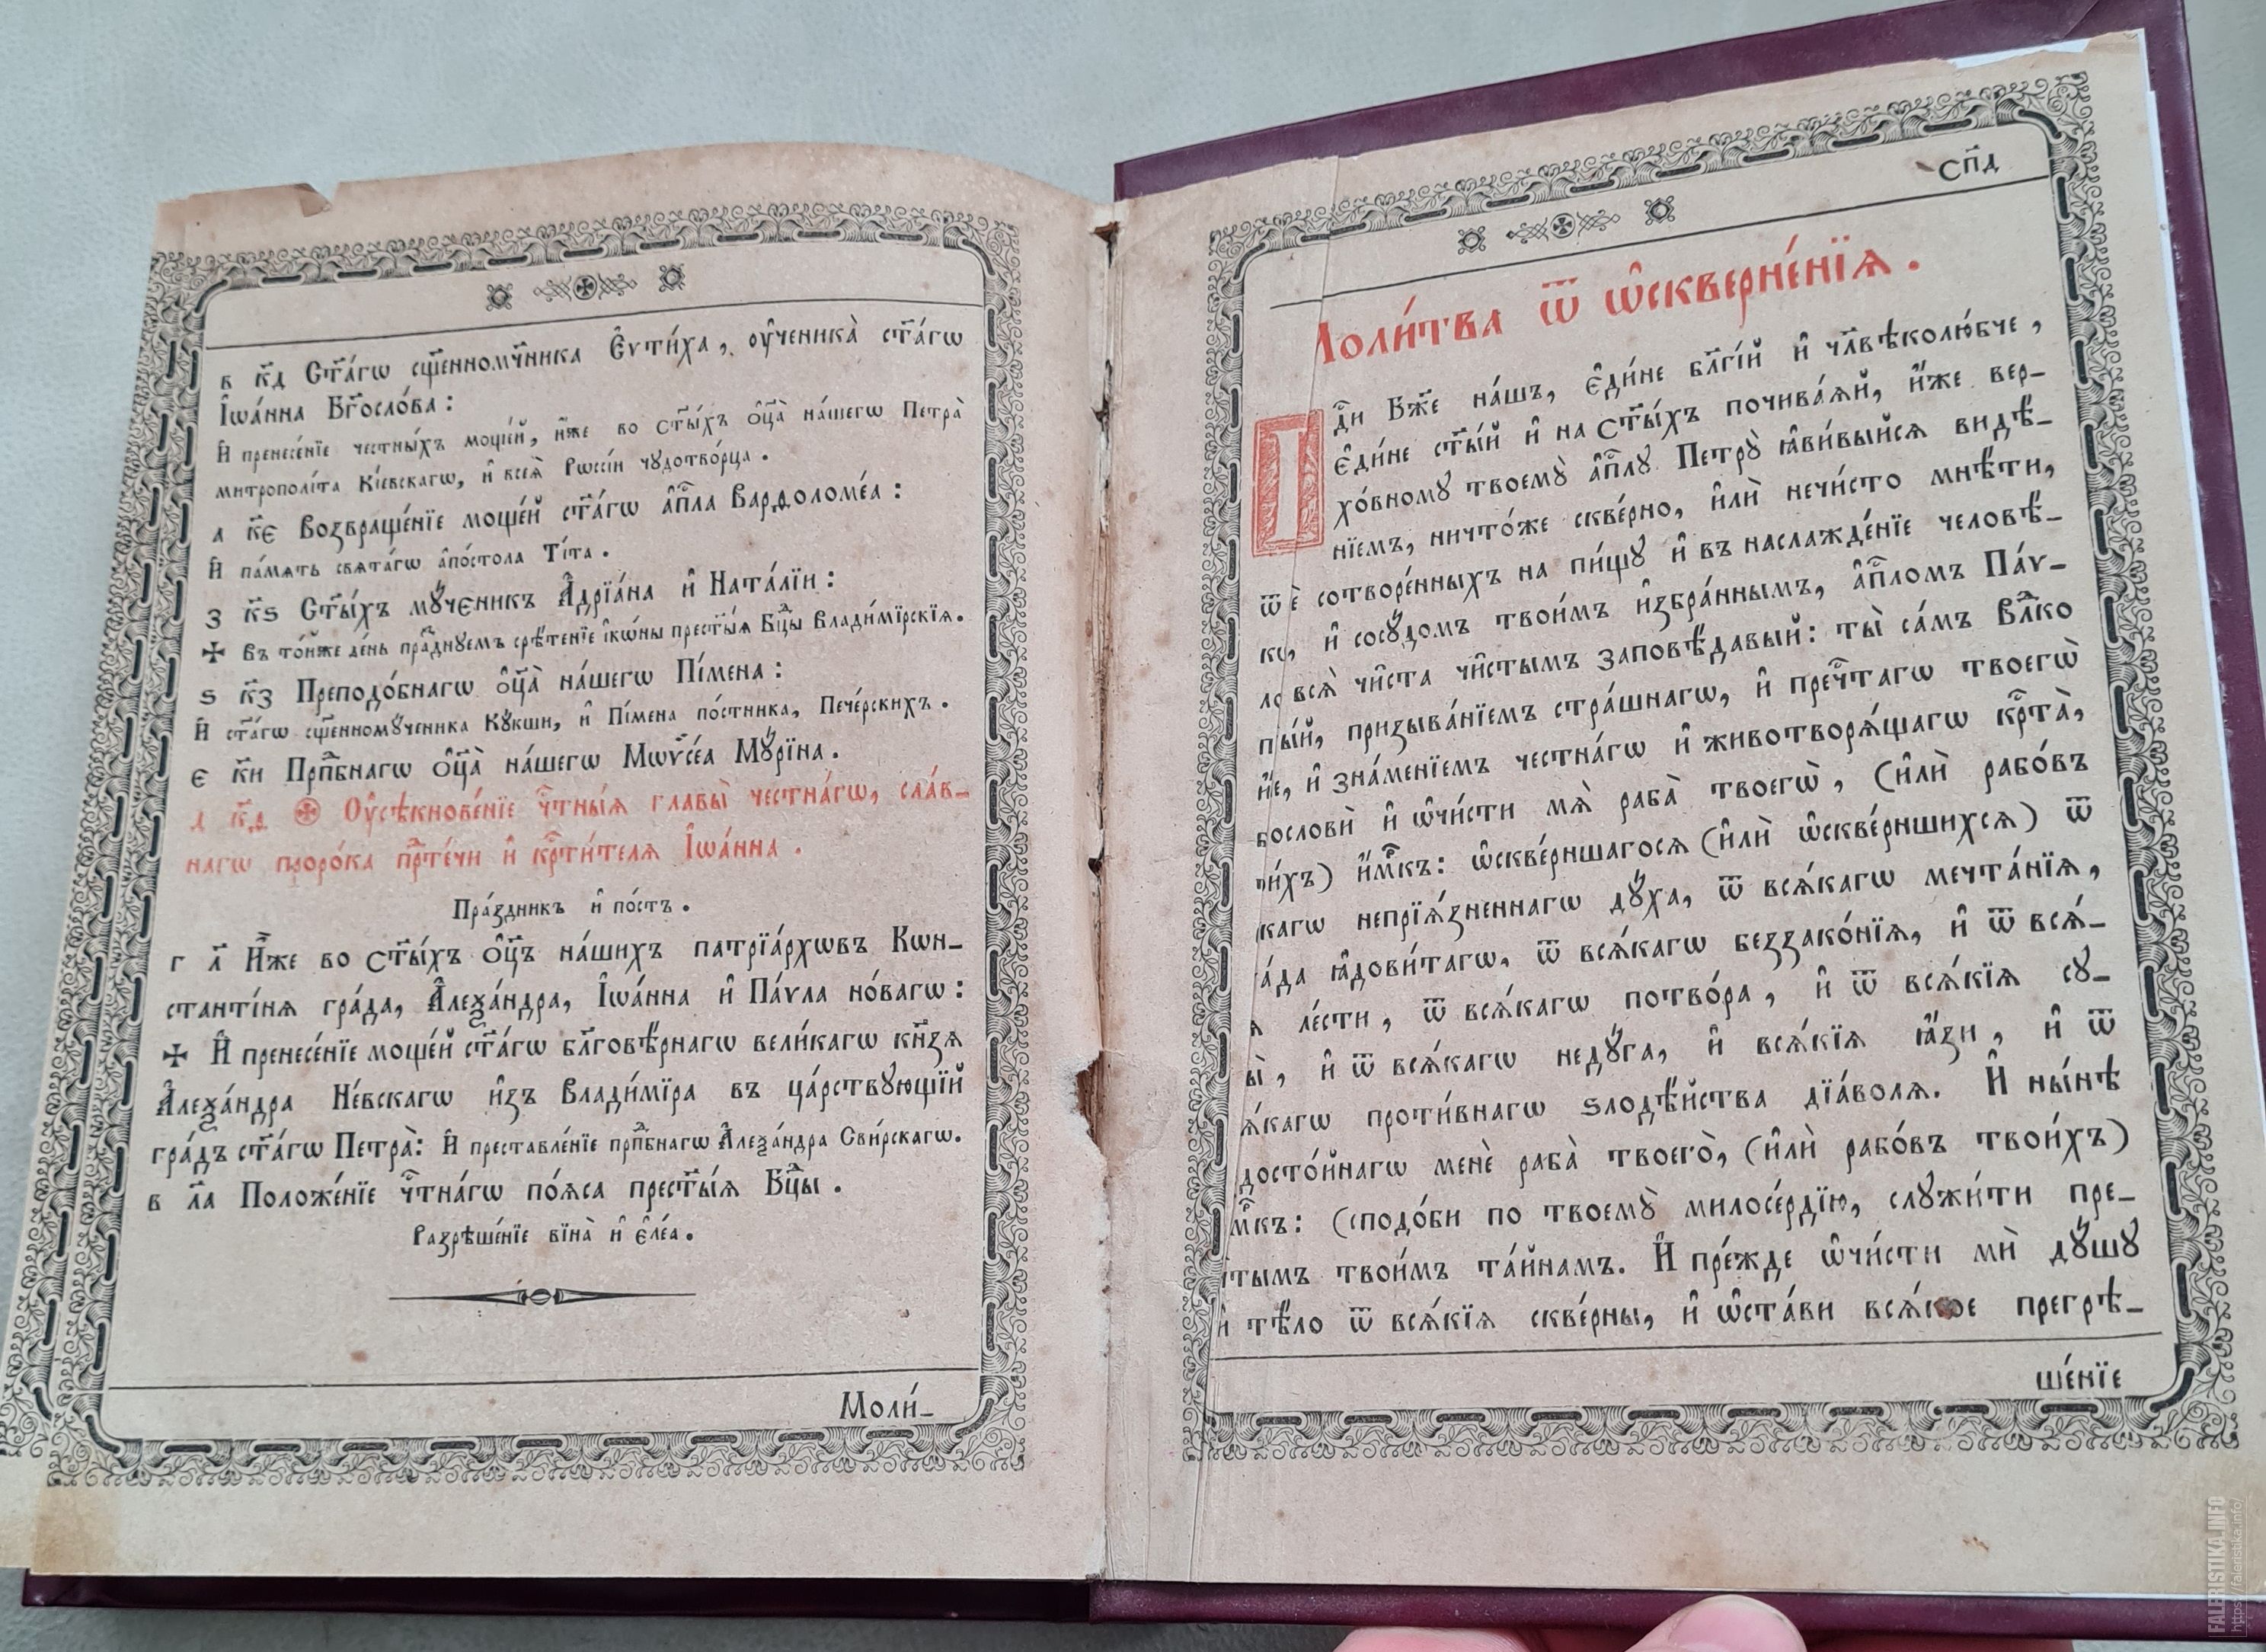 в к҃д Ст҃а́гѡ сщ҃енномч҃ника Є҆ѵти́ха, ᲂу҆ченика̀ ст҃а́гѡ
І҆ѡа́нна Бг҃осло́ва:
И҆ пренесе́нїе честны́хъ моще́й, и҆́же во ст҃ы́хъ ѻ҆ц҃а̀ на́шегѡ Петра̀
митрополі́та Кі́евскагѡ, и҆ всеѧ̀ Рѡссі́и чꙋдотво́рца.
д к҃є Возвраще́нїе моще́й ст҃а́гѡ а҆п҃ла Варѳоломе́а:
И҆ па́мѧть свѧта́гѡ а҆по́стола Ті́та.
з к҃ѕ Ст҃ы́хъ мꙋ́чєникъ А҆дрїа́на и҆ Ната́лїи:
✠ Въ то́йже де́нь пра́зднꙋемъ срѣ́тенїе і҆кѡ́ны прест҃ы́ѧ Бц҃ы Влади́мїрскїѧ.
ѕ к҃з Преподо́бнагѡ ѻ҆ц҃а̀ на́шегѡ Пі́мена:
И҆ ст҃а́гѡ сщ҃енномꙋ́ченика Кꙋ́кши, и҆ Пі́мена по́стника, Пече́рскихъ.
є к҃и Прпⷣбнагѡ ѻ҆ц҃а̀ на́шегѡ Мѡѷсе́а Мꙋ́рїна.
д к҃ѳ ᲂу҆сѣкнове́нїе чⷭ҇тны́ѧ главы̀ честна́гѡ, сла́в-
нагѡ проро́ка прⷣте́чи и҆ крⷭ҇ти́телѧ І҆ѡа́нна.
Пра́здникъ и҆ по́стъ.
г л҃ И҆́же во ст҃ы́хъ ѻ҆ц҃ъ на́шихъ патрїа́рхѡвъ Кѡн-
станті́нѧ гра́да, А҆леѯа́ндра, І҆ѡа́нна и҆ Па́ѵла но́вагѡ:
✠ И҆ пренесе́нїе моще́й ст҃а́гѡ бл҃говѣ́рнагѡ вели́кагѡ кн҃зѧ
А҆леѯа́ндра Не́вскагѡ и҆зъ Влади́мїра въ ца́рствꙋющїй
гра́дъ ст҃а́гѡ Петра̀: И҆ преставле́нїе прпⷣбнагѡ А҆леѯа́ндра Сви́рскагѡ.
в л҃а Положе́нїе чⷭ҇тна́гѡ по́ѧса прест҃ы́ѧ Бц҃ы.
Разрѣше́нїе вїна̀ и҆ є҆ле́а.
Моли́-
сп҃д
Моли́тва ѿ ѡ҆скверне́нїѧ.
Гдⷭ҇и Бж҃е на́шъ, є҆ди́не бл҃гі́й и҆ чл҃вѣколю́бче,
є҆ди́не ст҃ы́й и҆ на ст҃ы́хъ почива́ѧй, и҆́же вер-
хо́вномꙋ твоемꙋ̀ а҆п҃лꙋ Петрꙋ̀ ꙗ҆ви́выйсѧ видѣ́-
нїемъ, ничто́же скве́рно, и҆лѝ нечи́сто мнѣ́ти,
ѿ сотворе́нныхъ на пи́щꙋ и҆ въ наслажде́нїе человѣ́-
и҆ сосꙋ́домъ твои́мъ и҆збра́ннымъ, а҆п҃ломъ Па́ѵ-
всѧ̀ чи̑ста чи̑стымъ заповѣ́давый: ты̀ са́мъ Влⷣко
призыва́нїемъ стра́шнагѡ, и҆ пречⷭ҇тагѡ твоегѡ̀
и҆ зна́менїемъ честна́гѡ и҆ животворѧ́щагѡ крⷭ҇та̀,
бослови̾ и҆ ѡ҆чи́сти мѧ̀ раба̀ твоегѡ̀, (и҆лѝ рабо́въ
и́хъ) и҆́м҃къ: ѡ҆скве́рншагосѧ (и҆лѝ ѡ҆скве́рншихсѧ) ѿ
кагѡ непрїѧ́зненнагѡ дꙋ́ха, ѿ всѧ́кагѡ мечта́нїѧ,
а́да ꙗ҆дови́тагѡ, ѿ всѧ́кагѡ беззако́нїѧ, и҆ ѿ всѧ́-
ѧ ле́сти, ѿ всѧ́кагѡ потво́ра, и҆ ѿ всѧ́кїѧ сꙋ-
ы̀, и҆ ѿ всѧ́кагѡ недꙋ́га, и҆ всѧ́кїѧ ꙗ҆́зи, и҆ ѿ
ѧ́кагѡ проти́внагѡ ѕлодѣ́йства дїа́волѧ. И҆ ны́нѣ
досто́йнагѡ менѐ раба̀ твоего̀, (и҆лѝ рабо́въ твои́хъ)
м҃къ: (сподо́би по твоемꙋ̀ милосе́рдїю, слꙋжи́ти пре-
тымъ твои́мъ та́йнамъ. И҆ пре́жде ѡ҆чи́сти мѝ дꙋ́шꙋ
и҆ тѣ́ло ѿ всѧ́кїѧ скве́рны, и҆ ѡ҆ста́ви всѧ́кое прегрѣ-
ше́нїе
FALERISTIKA.INFO
https://faleristika.info/